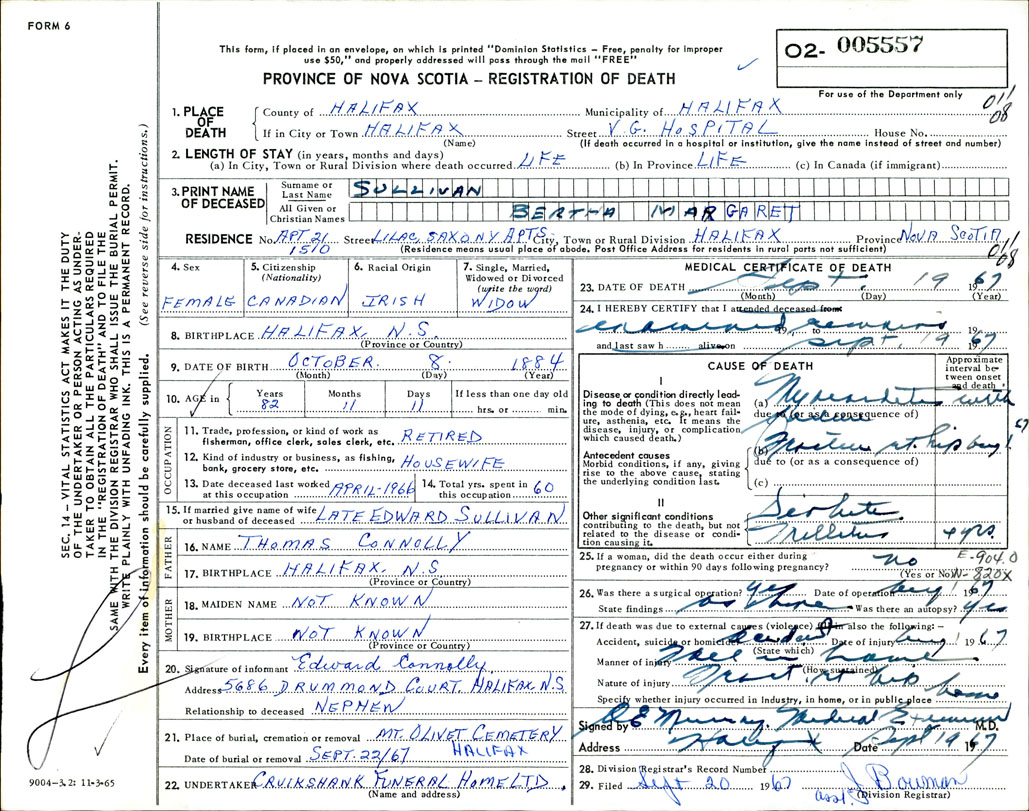 FORM 6
This form, if placed in an envelope, on which is printed "Dominion Statistics – Free, penalty for improper
use $50," and properly addressed will pass through the mail "FREE"
PROVINCE OF NOVA SCOTIA – REGISTRATION OF DEATH
02- 005557
For use of the Department only
011/08
1. PLACE OF DEATH
County of HALIFAX Municipality of HALIFAX
If in City or Town HALIFAX Street V.G. HOSPITAL House No.
(Name) (If death occurred in a hospital or institution, give the name instead of street and number)
2. LENGTH OF STAY (in years, months and days)
(a) In City, Town or Rural Division where death occurred LIFE (b) In Province LIFE (c) In Canada (if immigrant)
3. PRINT NAME OF DECEASED
Surname or Last Name SULLIVAN
All Given or Christian Names BERTHA MARGARET
RESIDENCE No. APT 21 Street LILAC SAXONY APTS. City, Town or Rural Division HALIFAX Province NOVA SCOTIA
1510 (Residence means usual place of abode. Post Office Address for residents in rural parts not sufficient)
011/08
4. Sex FEMALE
5. Citizenship (Nationality) CANADIAN
6. Racial Origin IRISH
7. Single, Married, Widowed or Divorced (write the word) WIDOW
8. BIRTHPLACE HALIFAX, N.S.
(Province or Country)
9. DATE OF BIRTH OCTOBER 8 1884
(Month) (Day) (Year)
10. AGE in Years 82 Months 11 Days 11 If less than one day old hrs. or min.
OCCUPATION
11. Trade, profession, or kind of work as fisherman, office clerk, sales clerk, etc. RETIRED
12. Kind of industry or business, as fishing, bank, grocery store, etc. HOUSEWIFE
13. Date deceased last worked at this occupation APRIL-1966 14. Total yrs. spent in this occupation 60
15. If married give name of wife or husband of deceased LATE EDWARD SULLIVAN
FATHER
16. NAME THOMAS CONNOLLY
17. BIRTHPLACE HALIFAX. N.S
(Province or Country)
MOTHER
18. MAIDEN NAME NOT KNOWN
19. BIRTHPLACE NOT KNOWN
(Province or Country)
20. Signature of informant Edward Connolly
Address 5686 DRUMMOND COURT. HALIFAX N.S
Relationship to deceased NEPHEW
21. Place of burial, cremation or removal MT. OLIVET CEMETERY
HALIFAX
Date of burial or removal SEPT. 22/67
22. UNDERTAKER CRUIKSHANK FUNERAL HOME LTD.
(Name and address)
MEDICAL CERTIFICATE OF DEATH
23. DATE OF DEATH Sept. 19 1967
(Month) (Day) (Year)
24. I HEREBY CERTIFY that I attended deceased from
examined remains 19 , to 19
and last saw h alive on Sept. 19 1967
CAUSE OF DEATH
Approximate interval between onset and death
I
Disease or condition directly leading to death (This does not mean the mode of dying, e.g., heart failure, asthenia, etc. It means the disease, injury, or complication which caused death.)
(a) Myocarditis with
failure
due to (or as a consequence of)
Antecedent causes
Morbid conditions, if any, giving rise to the above cause, stating the underlying condition last.
(b) Fracture rt hip Aug 1 67
due to (or as a consequence of)
(c)
II
Other significant conditions contributing to the death, but not related to the disease or condition causing it.
Diabetes
Mellitus yrs.
25. If a woman, did the death occur either during pregnancy or within 90 days following pregnancy? no
(Yes or No)
E-904.0
N-820X
26. Was there a surgical operation? yes Date of operation Aug 1 1967
State findings as above Was there an autopsy? yes
27. If death was due to external causes (violence) fill in also the following:–
Accident, suicide or homicide accident Date of injury Aug 1 1967
(State which)
Manner of injury Fell in home
(How sustained)
Nature of injury Fract. rt hip
Specify whether injury occurred in Industry, in home, or in public place home
Signed by Murray, Medical Examiner M.D.
Address Halifax Date Sept 19 1967
28. Division Registrar's Record Number
29. Filed Sept 20 1967 asst J Bowman
(Division Registrar)
SEC. 14 – VITAL STATISTICS ACT MAKES IT THE DUTY
OF THE UNDERTAKER OR PERSON ACTING AS UNDER-
TAKER TO OBTAIN ALL THE PARTICULARS REQUIRED
IN THE "REGISTRATION OF DEATH" AND TO FILE THE
SAME WITH THE DIVISION REGISTRAR WHO SHALL ISSUE THE BURIAL PERMIT.
WRITE PLAINLY WITH UNFADING INK. THIS IS A PERMANENT RECORD.
Every item of information should be carefully supplied. (See reverse side for instructions.)
9004-3.2: 11-3-65